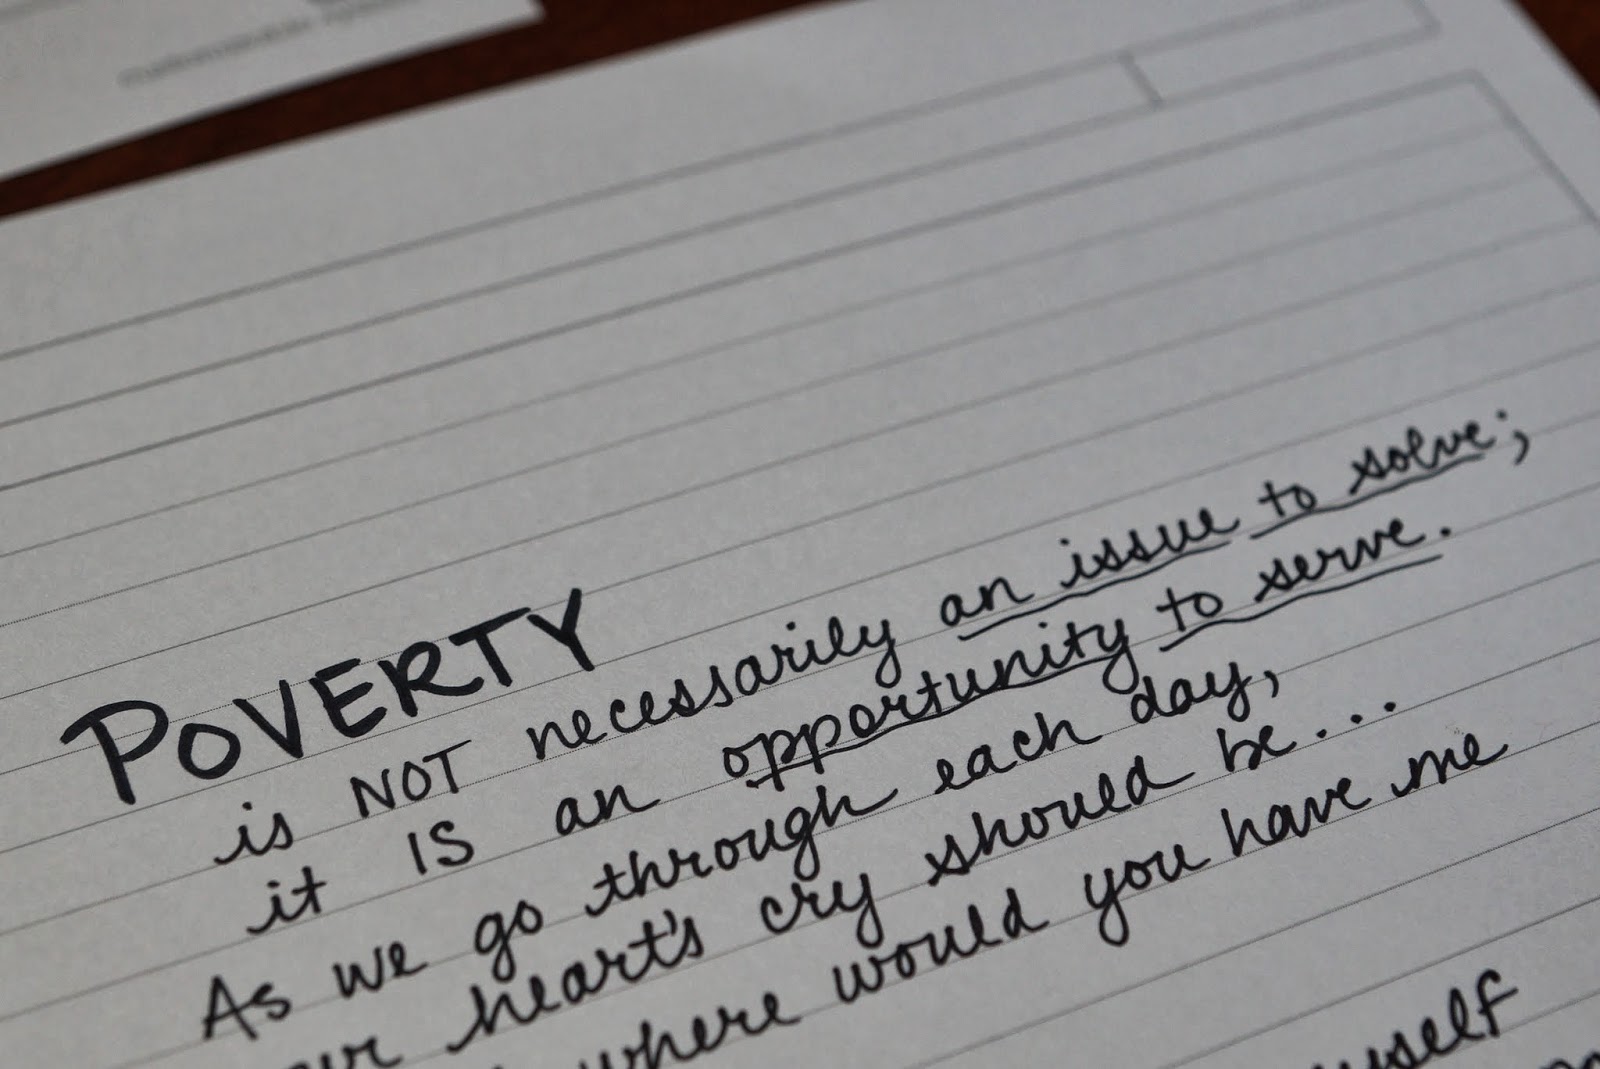 POVERTY
is NOT necessarily an issue to solve;
it IS an opportunity to serve.
As we go through each day,
our heart's cry should be...
where would you have me
myself